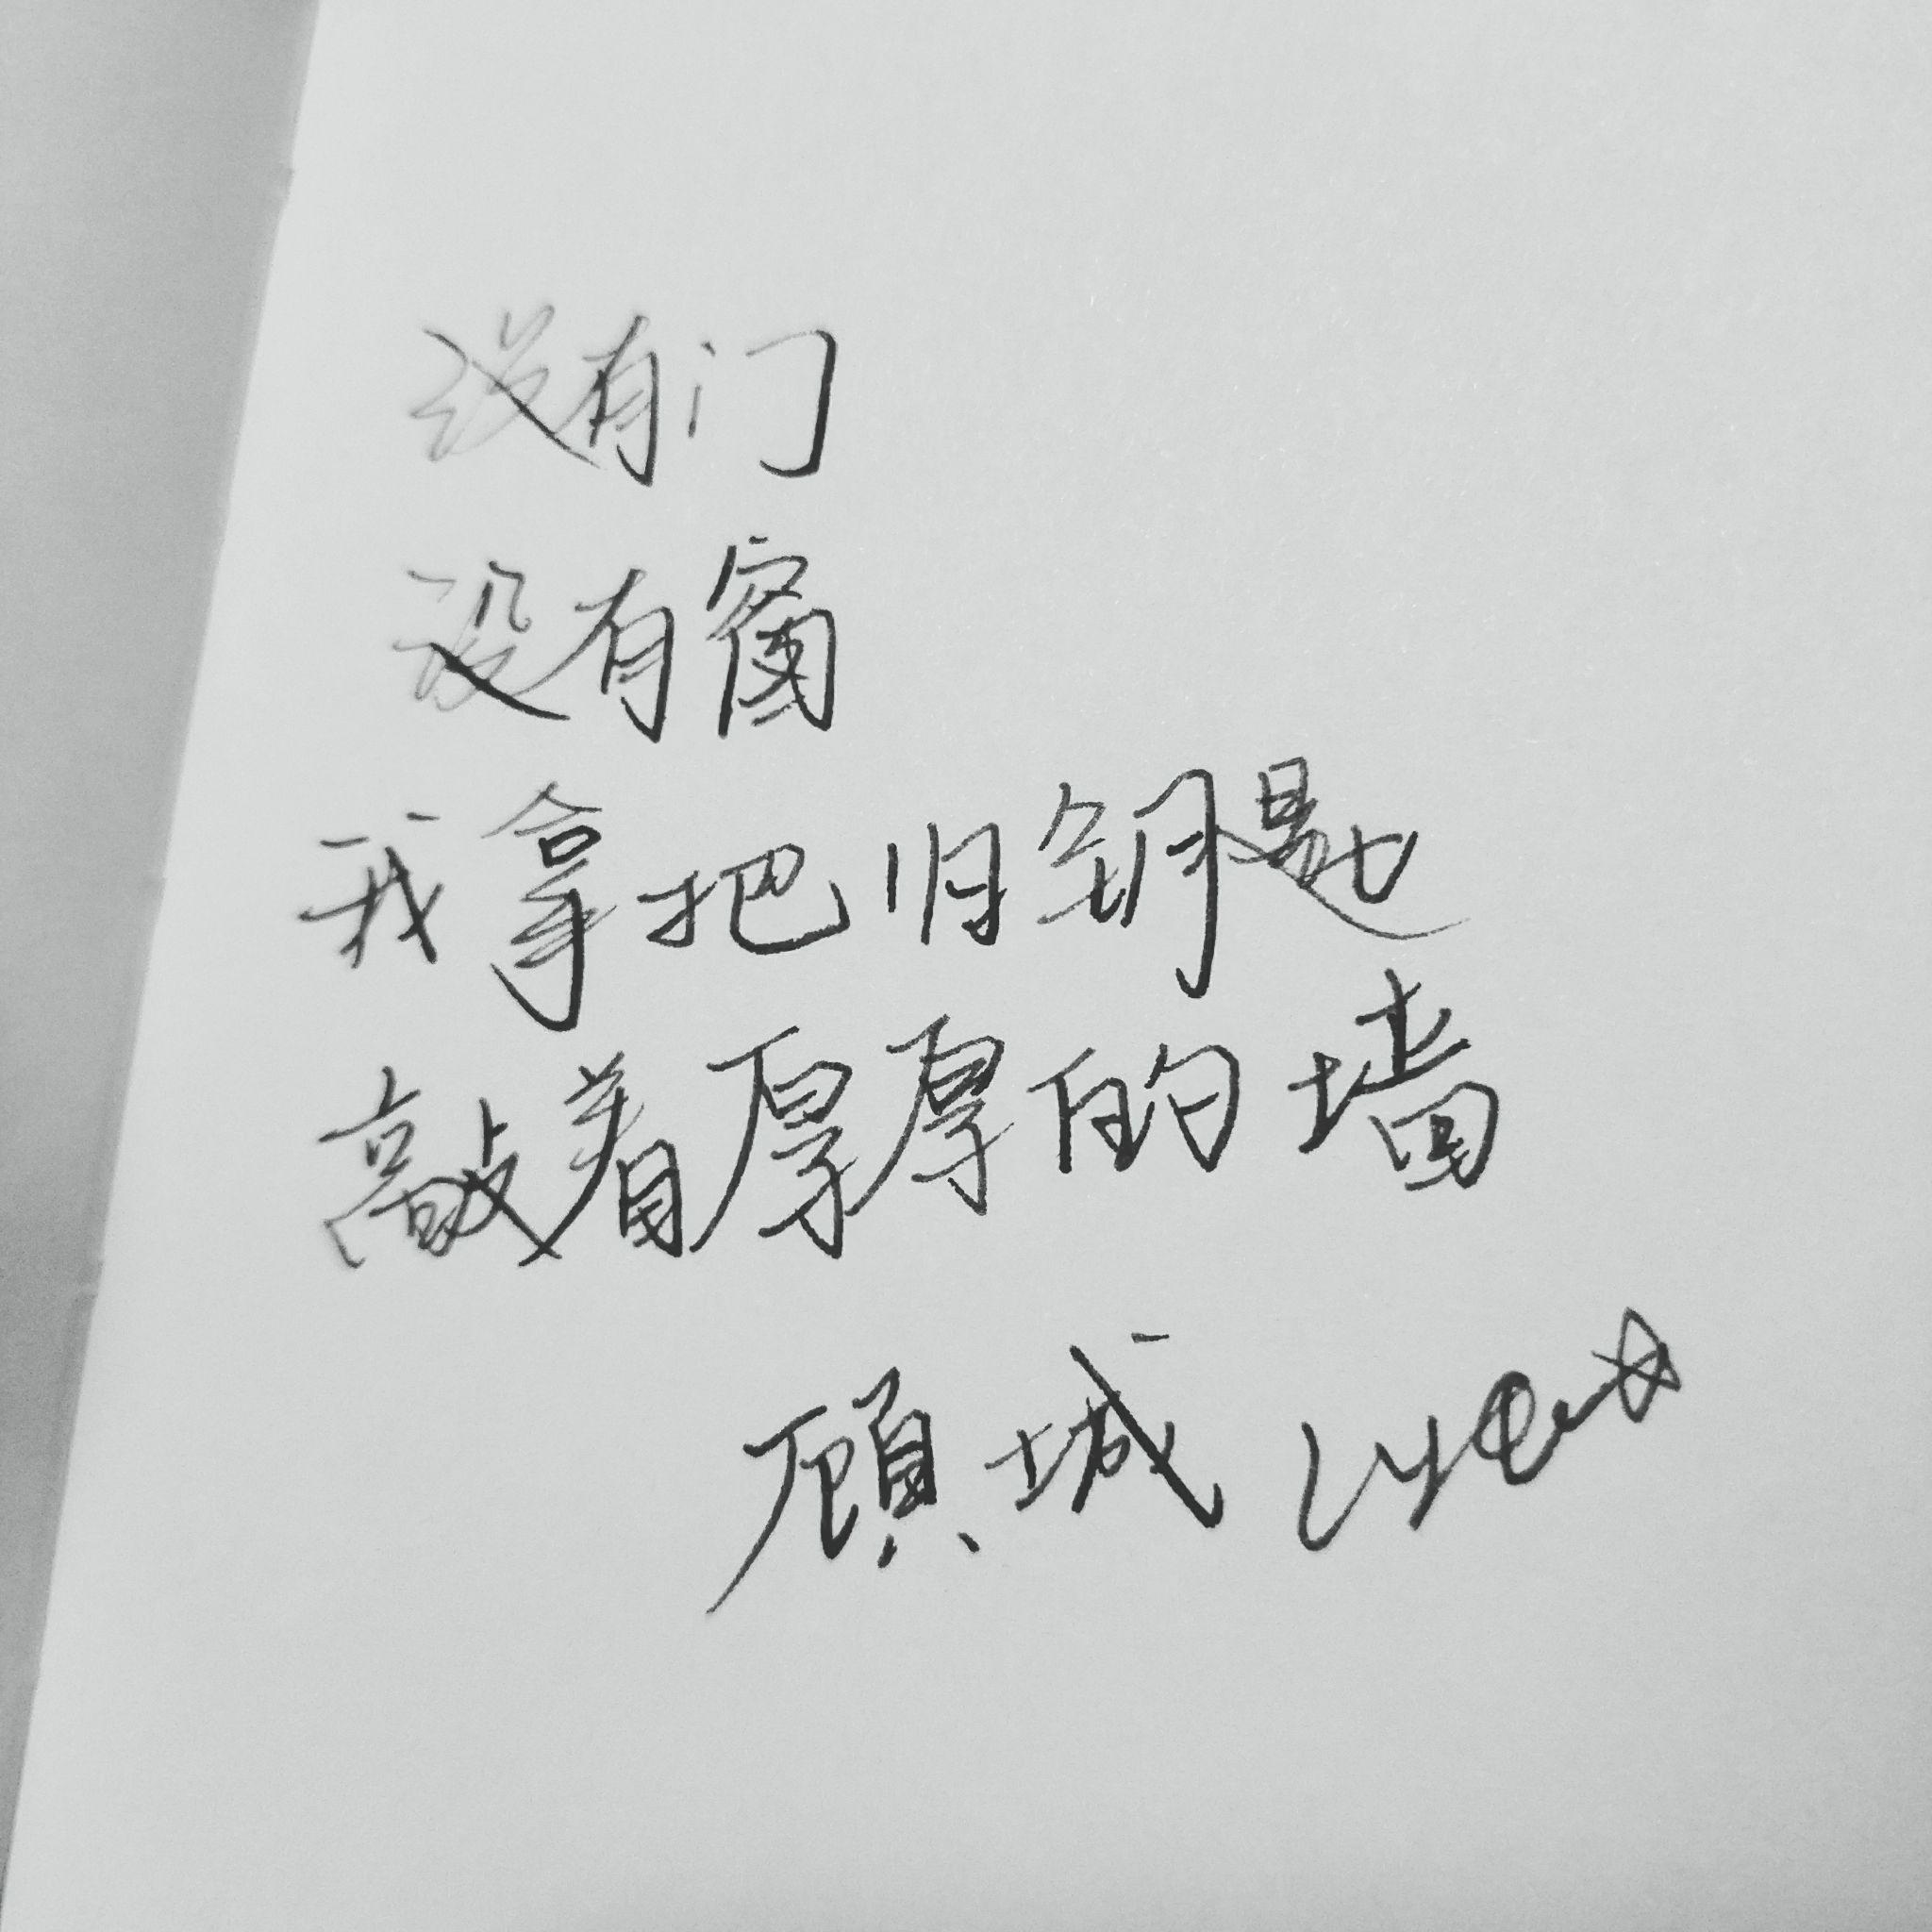 没有门
没有窗
我拿把旧钥匙
敲着厚厚的墙
顾城